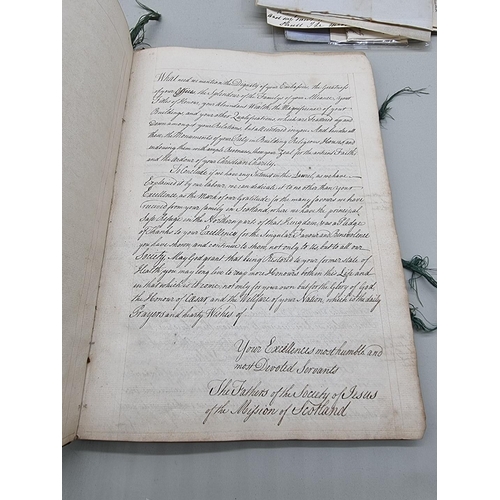 What need we mention the Dignity of your Extraction, the Greatness
of your Office, the Splendour of the Familys of your Alliance, your
Titles of Honour, your abundant Wealth, the Magnificence of your
Buildings, and your other Qualifications, which are scattered up and
Down amongst your Relations, but all United in you. And besides all
them, the Monuments of your Piety, in Building Religious Houses, and
endowing them with ample Revenues, then your Zeal for the antient Faith
and the ardour of your Christian Charity.
To Conclude, if we have any Interest in this Jewel, as we have
Explain'd it by our labour, we can dedicate it to no other than Your
Excellence, as the Mark of our Gratitude, for the many favours we have
receiv'd from your family in Scotland, where we have the principal
Safe Refuge in the Northern parts of that Kingdom, was a Pledge
of thanks to your Excellency for the singular Favour and Benevolence
you have shewn and continue to shew not only to Us but to all our
Society. May God grant that being Restored to your former state of
Health, you may long live to reap more Honours both in this Life and
in that which is to come, not only for your own but for the Glory of God,
the Honour of Cæsar and the Welfare of your Nation, which is the daily
Prayers and hearty Wishes of
Your Excellences most humble and
most Devoted Servants
The Fathers of the Society of Jesus
of the Mission of Scotland